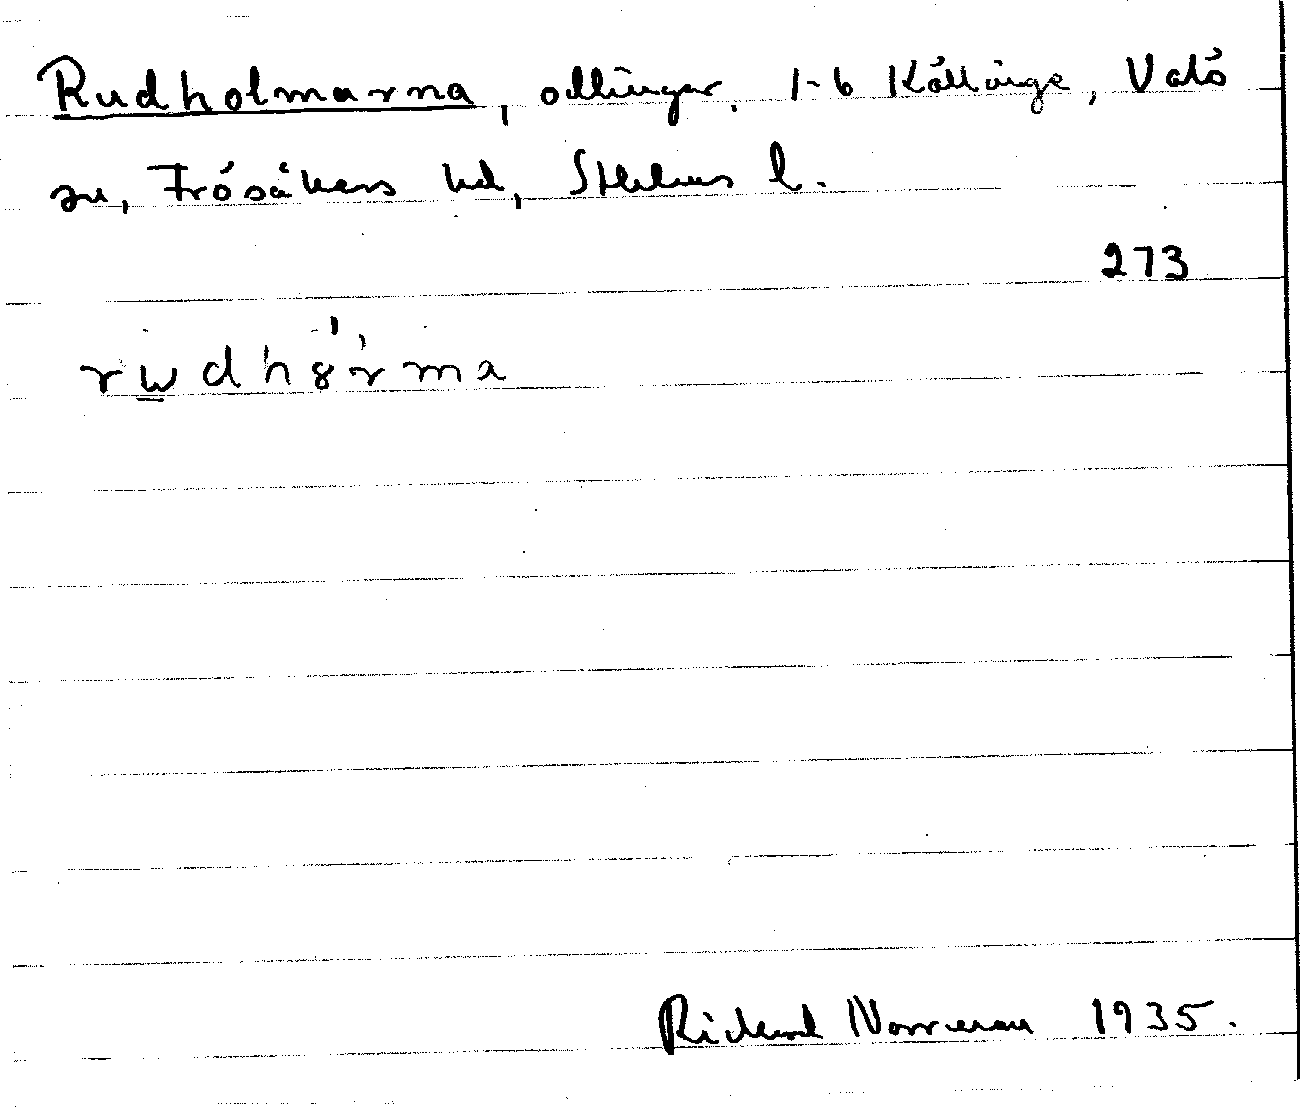 Rudholmarna, odlingar. 1-6 Källänge, Vätö
sn, Frösåkers hd, Sthlms l.
273
rudh8rma
Rickard Norrman 1935.